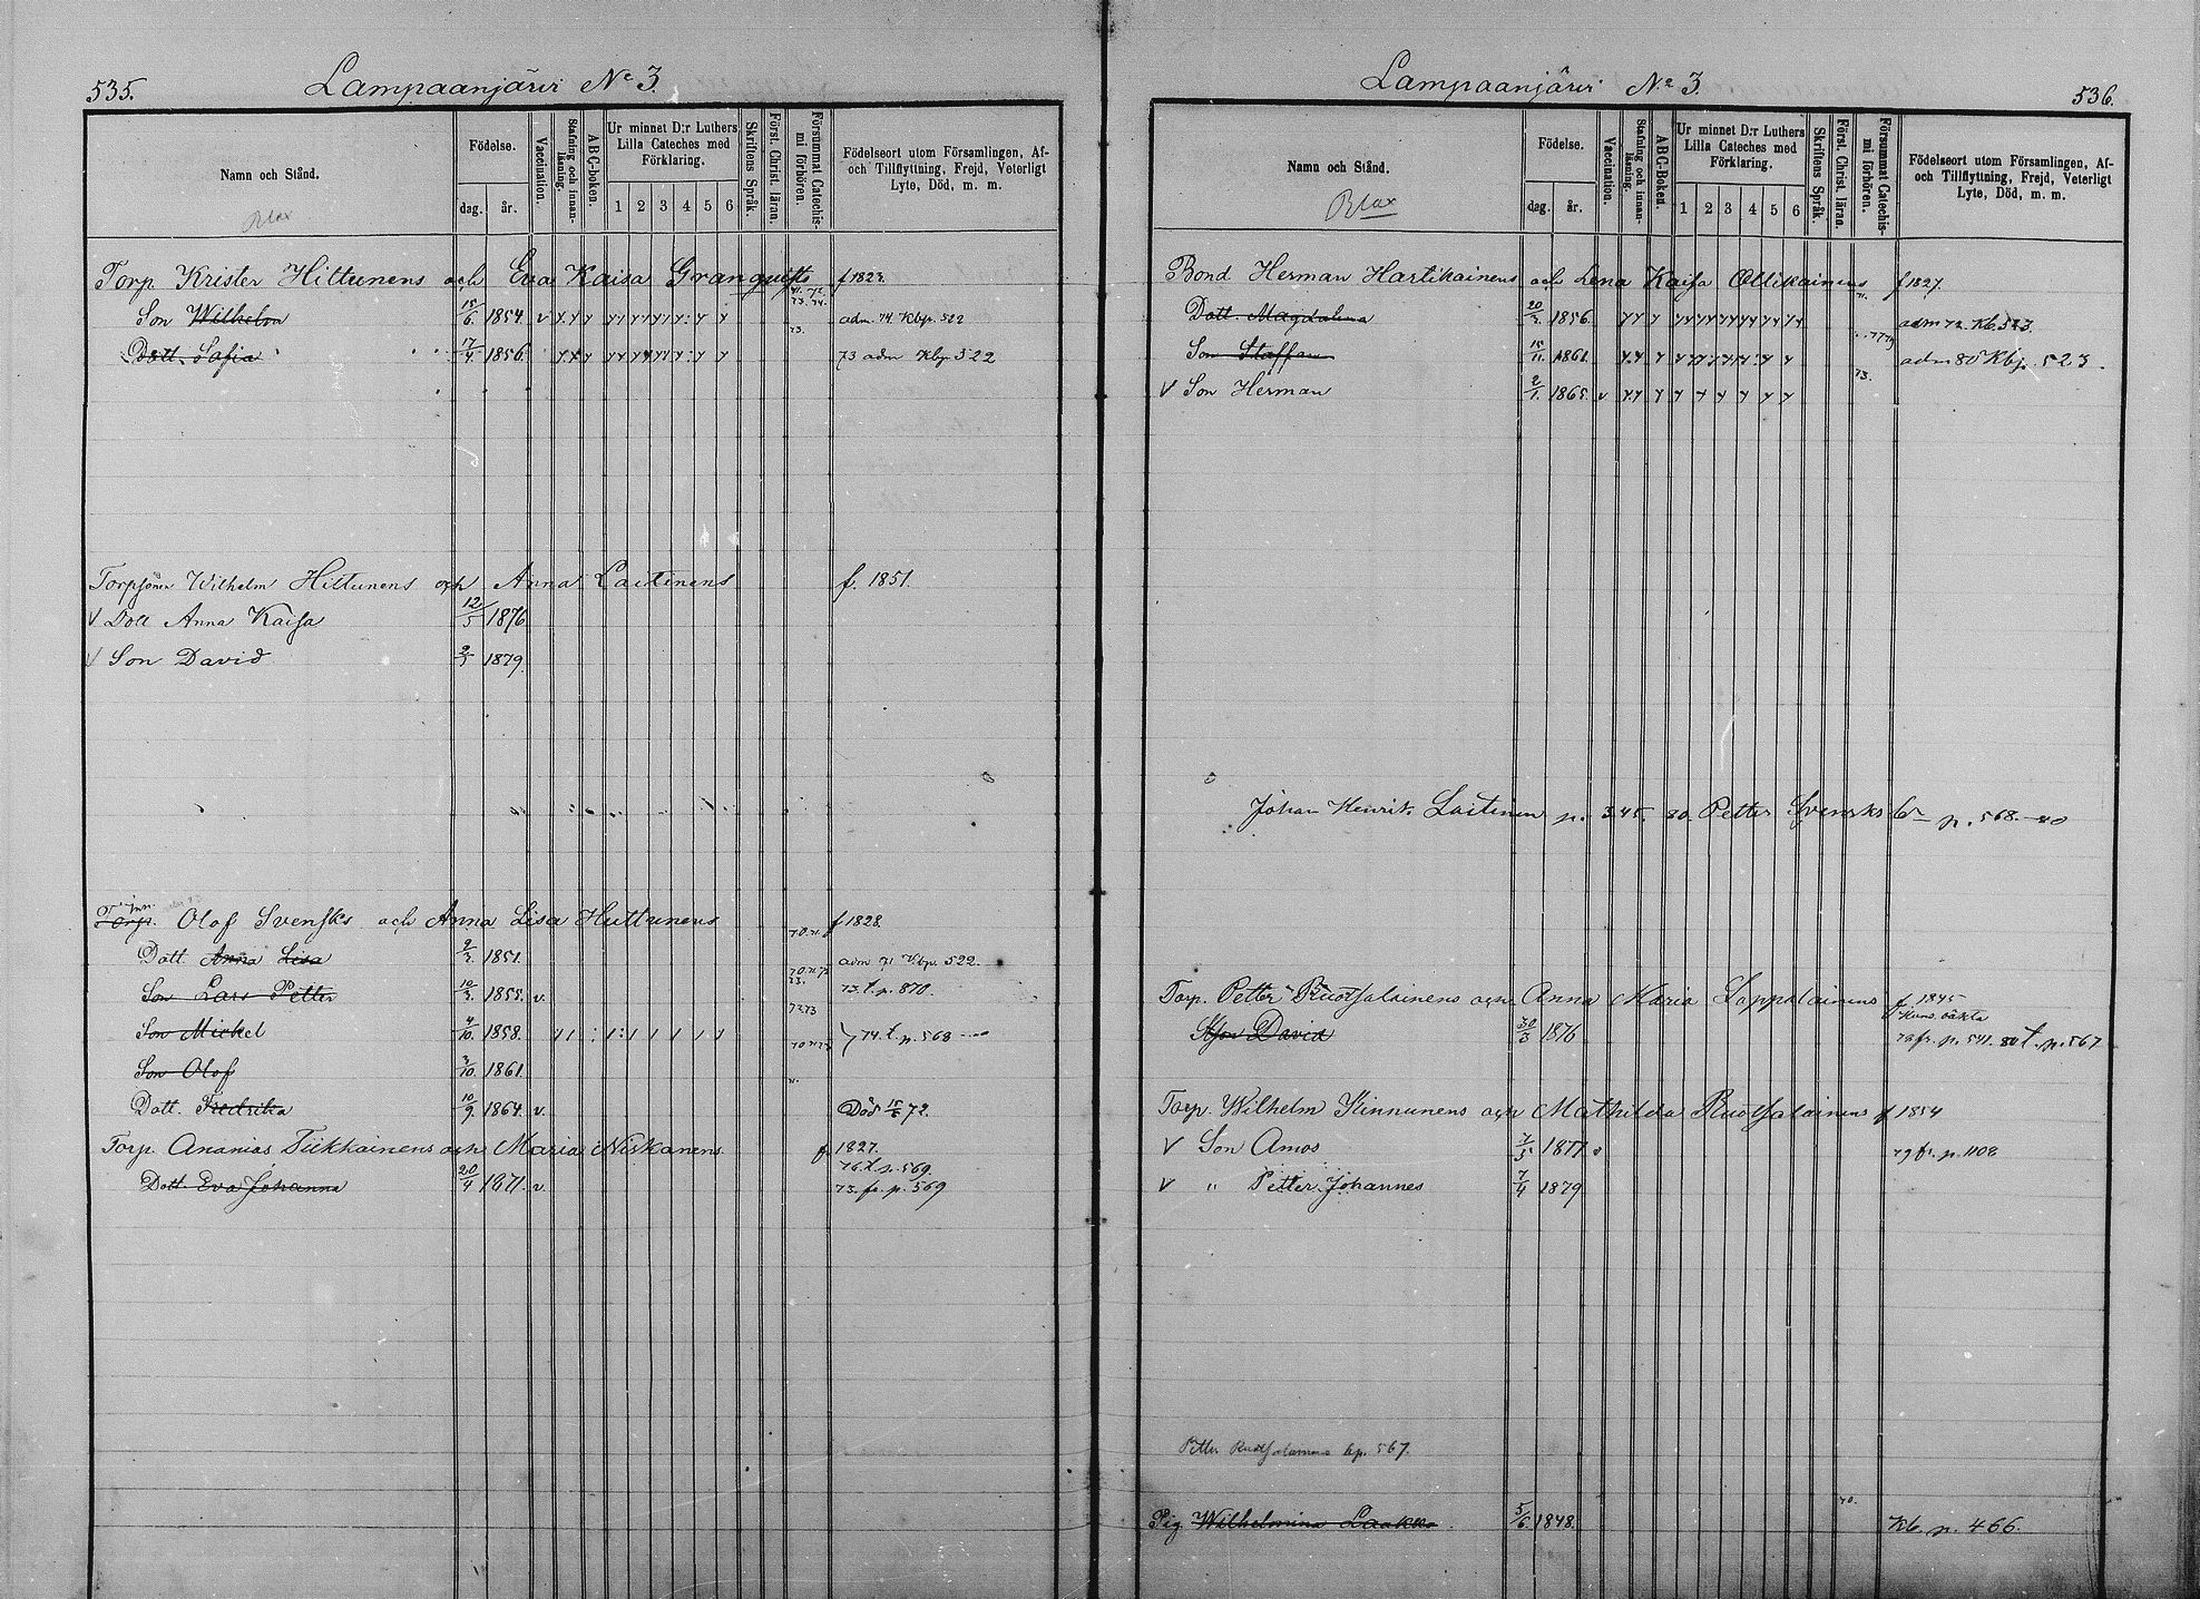 535.
Lampaanjärvi No 3.
Namn och Stånd.
Födelse.
dag.
år.
Vaccination.
Stafning och innan-läsning.
ABC-boken.
Ur minnet D:r Luthers Lilla Cateches med Förklaring.
1 2 3 4 5 6
Skriftens Språk.
Först. Christ. läran.
Försummat Catechis-mi förhören.
Födelseort utom Församlingen, Af- och Tillflyttning, Frejd, Veterligt Lyte, Död, m. m.
Torp. Krister Hiltunens och Eva Kaisa Granqvists f 1823.
Son Wilhelm 15/6. 1854. v adm. 74. Kbp. 522
Dott. Sofia 17/4 1856. 73 adm Kbp. 522
Torpsonen Wilhelm Hiltunens och Anna Laitinens f. 1851.
V Dott Anna Kaisa 12/5 1876
V Son David 1879.
Torp. Olof Svensks och Anna Lisa Huttunens f 1828.
Dott. Anna Lisa 1851. adm 71 Kbp. 522.
Son Lars Petter 1855. v. 73. t. p. 870.
Son Mickel 4/10. 1858. 74 t. p. 568
Son Olof 3/10. 1861.
Dott. Fredrika 10/9. 1864. v. Död 72.
Torp. Ananias Tiikkainens och Maria Niskanens f 1827.
76 t. p. 569.
Dott. Eva Johanna 20/4 1871. v. 73. fr. p. 569
536.
Lampaanjärvi No 3.
Namn och Stånd.
Födelse.
dag.
år.
Vaccination.
Stafning och innan-läsning.
ABC-Boken.
Ur minnet D:r Luthers Lilla Cateches med Förklaring.
1 2 3 4 5 6
Skriftens Språk.
Först. Christ. läran.
Försummat Catechis-mi förhören.
Födelseort utom Församlingen, Af- och Tillflyttning, Frejd, Veterligt Lyte, Död, m. m.
Bond Herman Hartikainens och Lena Kaisa Ollikainens f 1827.
Dott. Magdalena 1856. adm 72. Kb. 523.
Son Staffan 15/11. 1861. adm 80 Kbp. 523.
V Son Herman 2/1. 1865. v
Johan Henrik Laitinen p. 345. 80. Petter Svensks p. 568. 80
Torp. Petter Ruotsalainens och Anna Maria Lappalainens f. 1845
Son David 30/3 1876 p. 541. 80 t. p. 567
Torp. Wilhelm Kinnunens och Mathilda Ruotsalainens f 1854
V Son Amos 7/5 1877 79 fr. p. 1108
V " Petter Johannes 7/4 1879
Petter Ruotsalainens kp. 567.
Pig. Wilhelmina Laakko 5/6. 1848. Kb. p. 466.